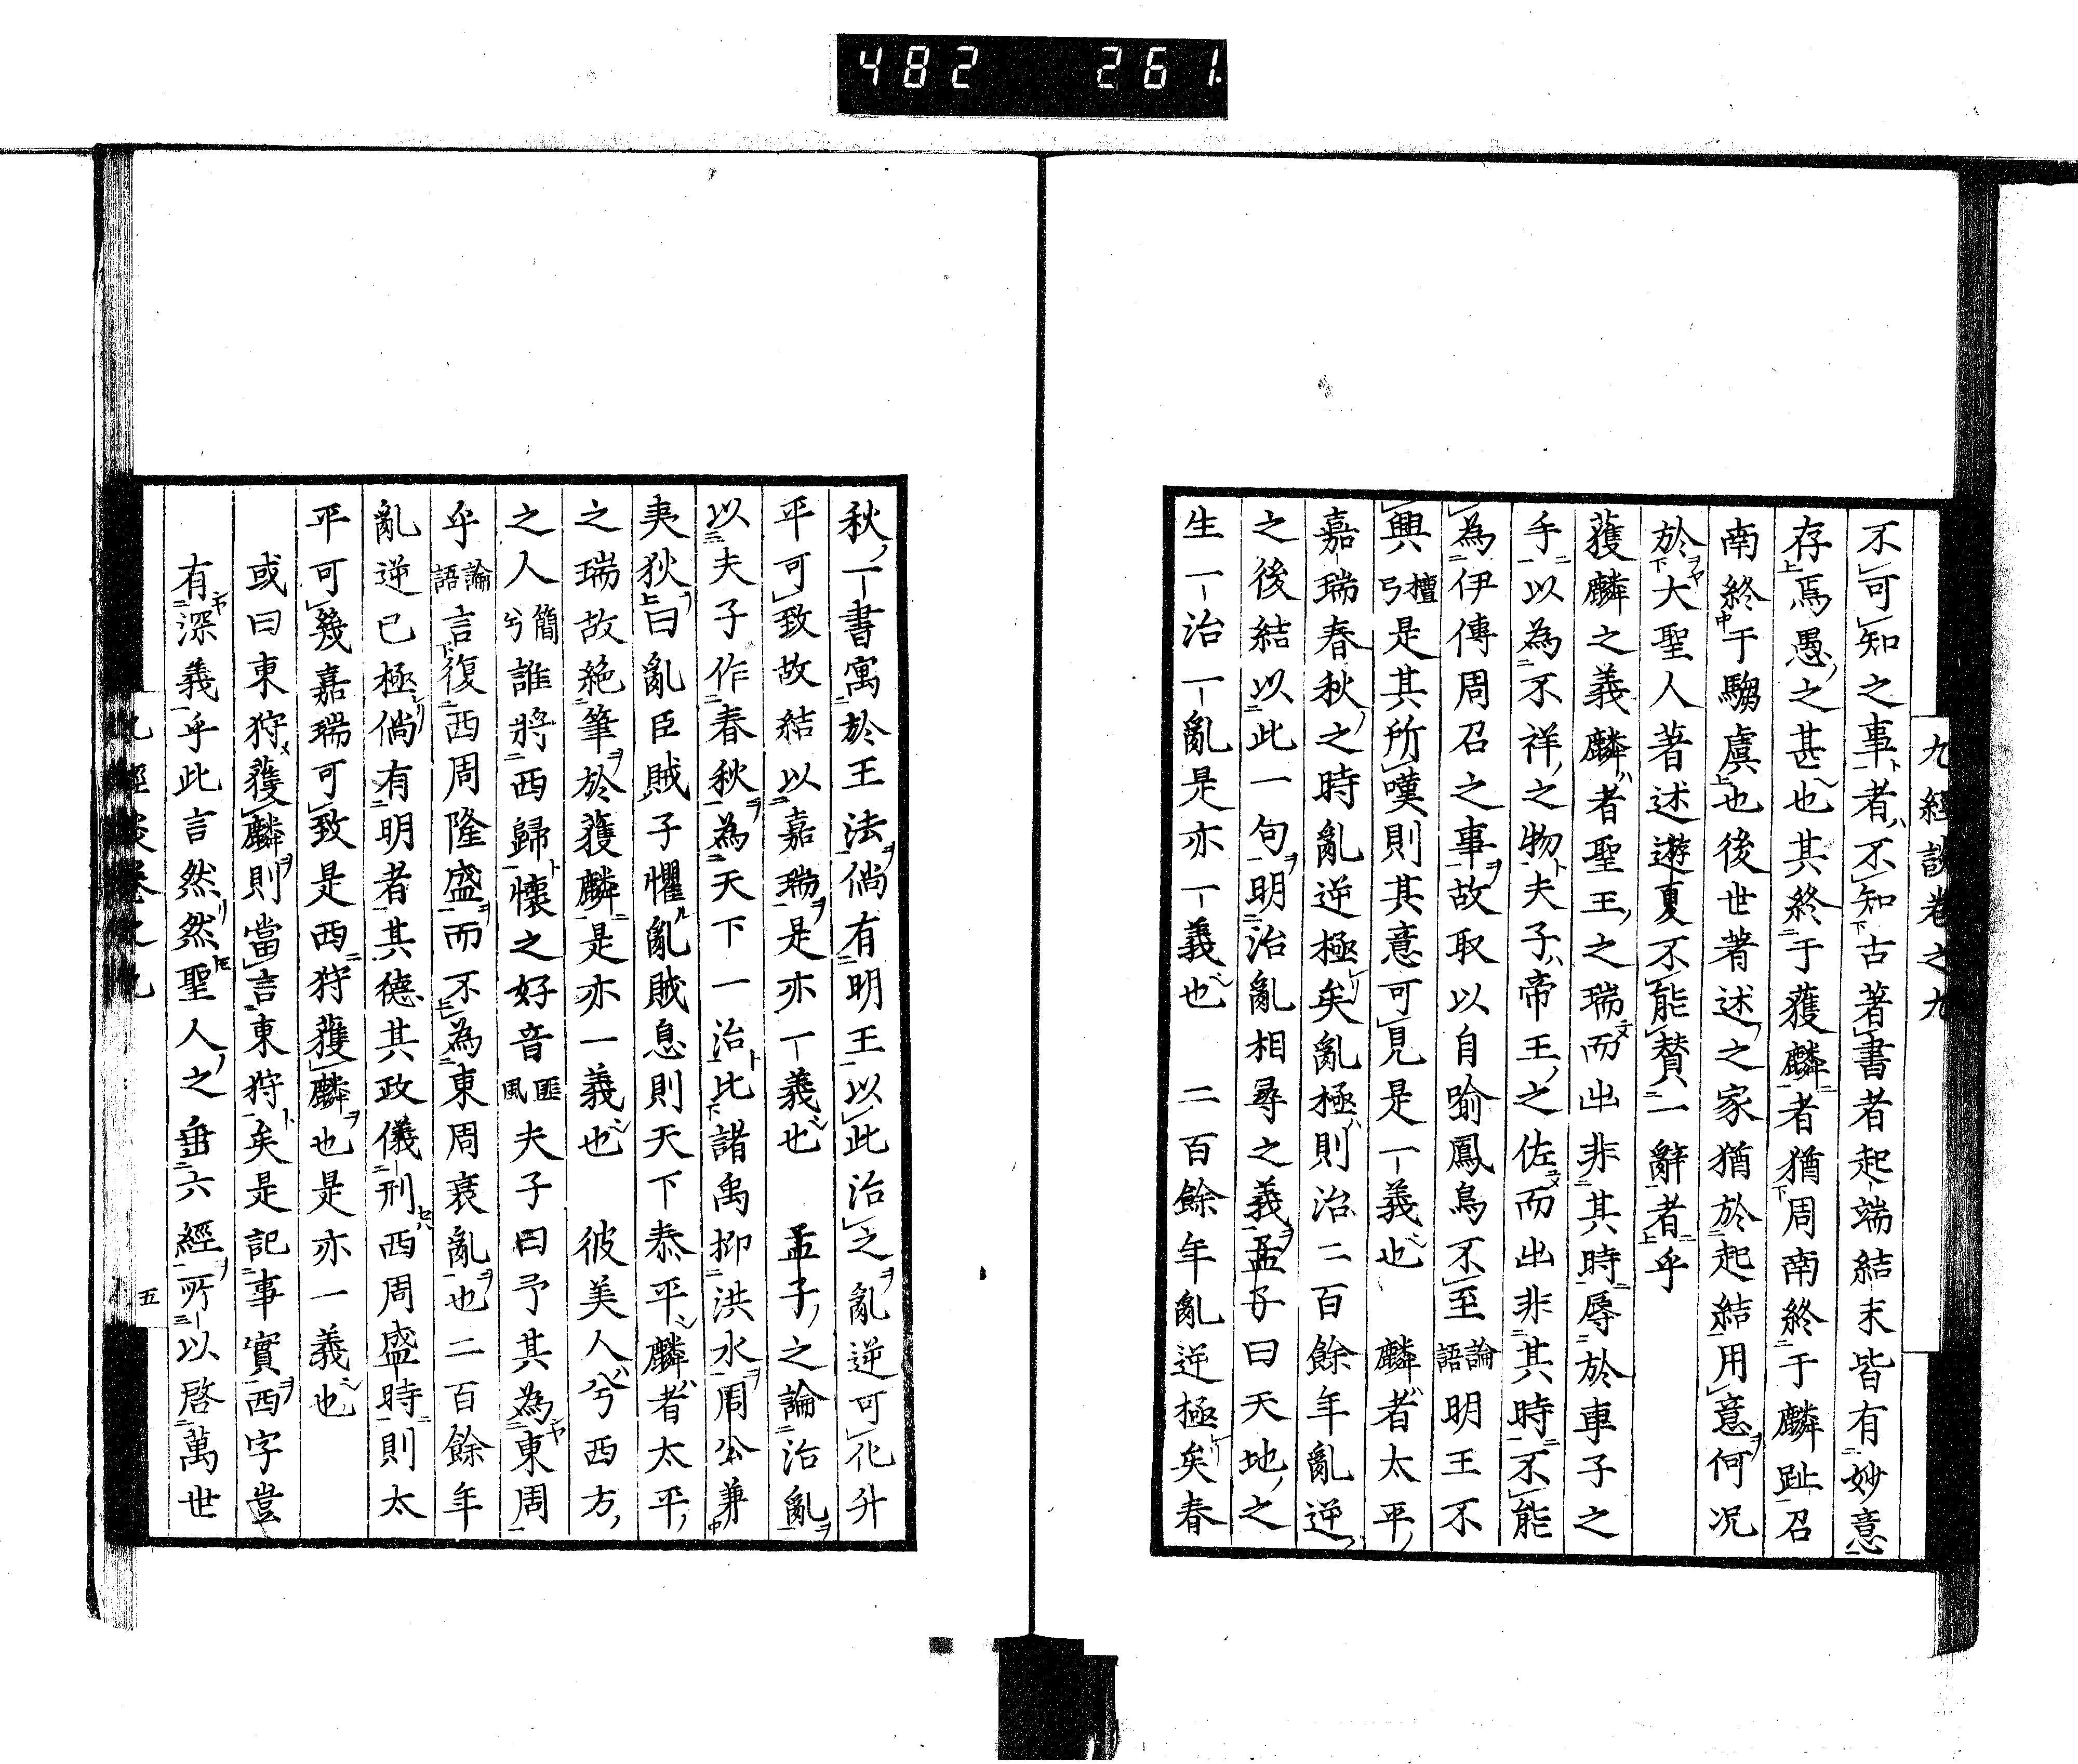 482 261
九經談卷之九
不可知之事者不知古著書者起端結末皆有妙意
存焉愚之甚也其終于獲麟者猶周南終于麟趾召
南終于騶虞也後世著述之家猶於起結用意何況
於大聖人著述遊夏不能贊一辭者乎
獲麟之義麟者聖王之瑞而出非其時辱於車子之
手以為不祥之物夫子帝王之佐而出非其時不能
為伊傳周召之事故取以自喻鳳鳥不至論語明王不
興檀弓是其所嘆則其意可見是一義也　麟者太平
嘉瑞春秋之時亂逆極矣亂極則治二百餘年亂逆
之後結以此一句明治亂相尋之義孟子曰天地之
生一治一亂是亦一義也　二百餘年亂逆極矣春
秋一書寓於王法倘有明王以此治之亂逆可化升
平可致故結以嘉瑞是亦一義也　孟子之論治亂
以夫子作春秋為天下一治比諸禹抑洪水周公兼
夷狄曰亂臣賊子懼亂賊息則天下泰平麟者太平
之瑞故絶筆於獲麟是亦一義也　彼美人兮西方
之人兮簡兮誰將西歸懷之好音匪風夫子曰予其為東周
乎論語言復西周隆盛而不為東周衰亂也二百餘年
亂逆已極倘有明者其德其政儀刑西周盛時則太
平可幾嘉瑞可致是西狩獲麟也是亦一義也
或曰東狩獲麟則當言東狩矣是記事實西字豈
有深義乎此言然然聖人之垂六經所以啓萬世
九經談卷之九
五